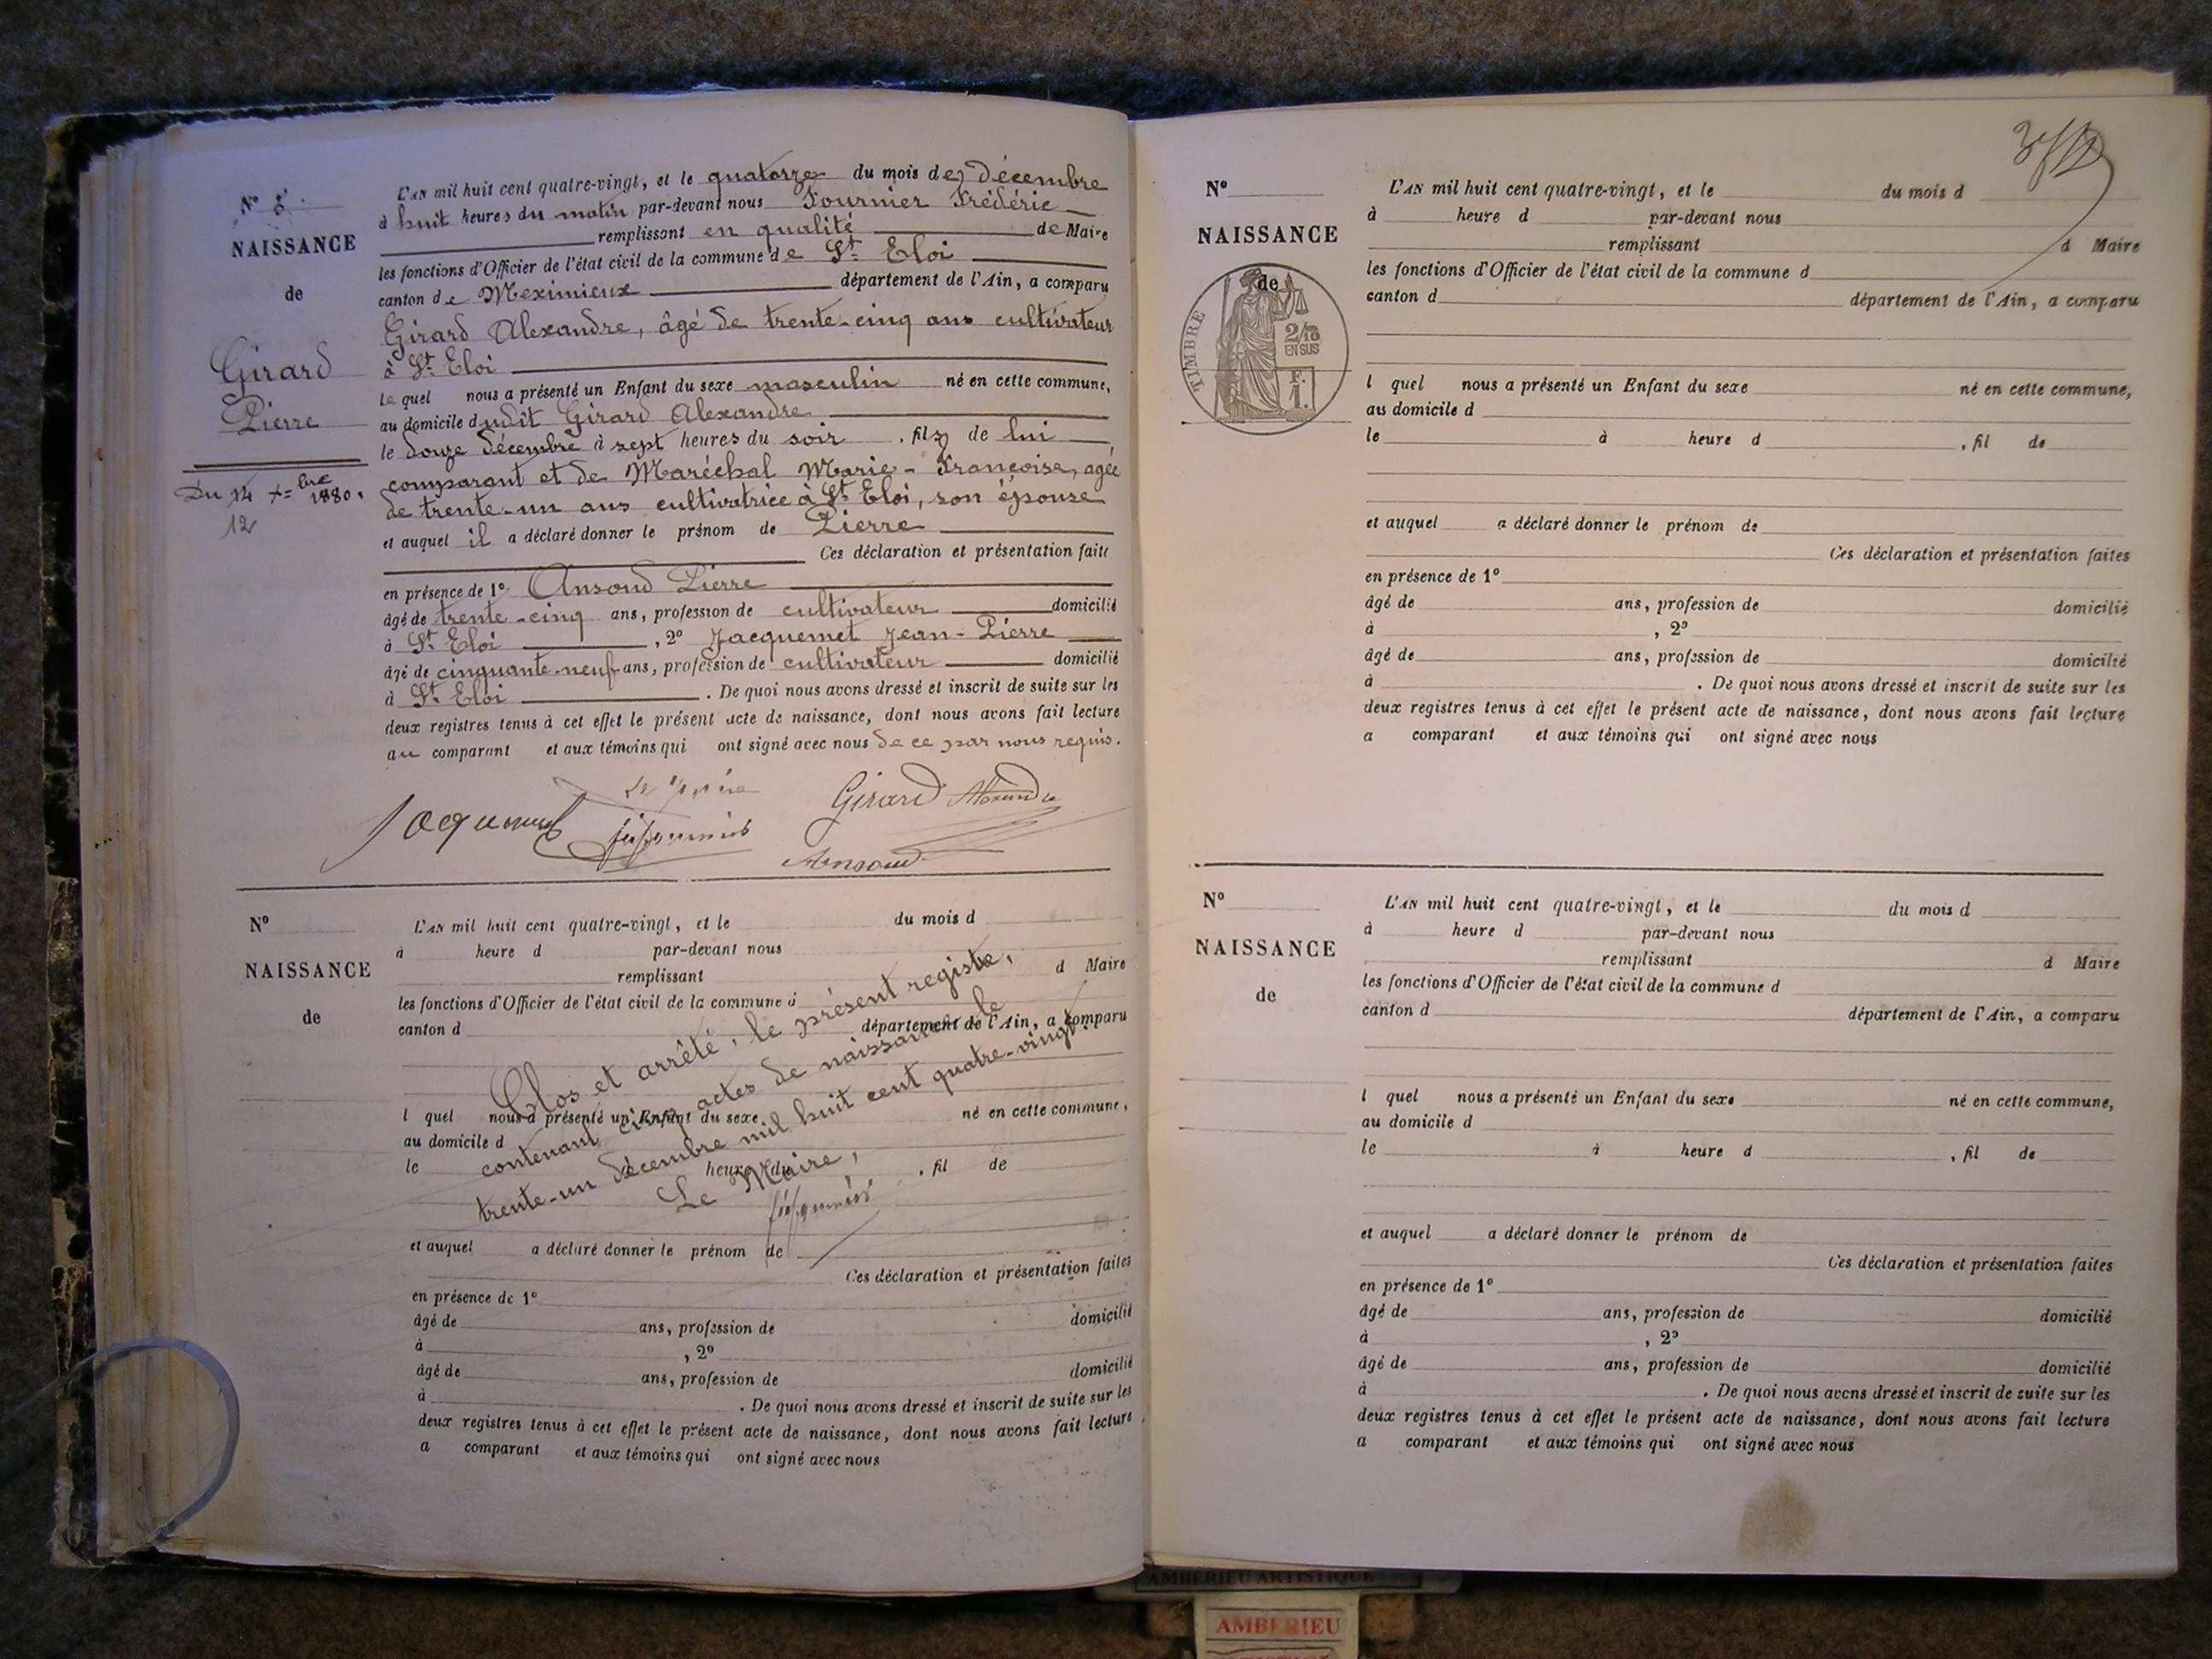 N° 5
NAISSANCE
de
Girard
Pierre
Du 14 Xbre 1880.
12
L'AN mil huit cent quatre-vingt, et le quatorze du mois de Décembre
à huit heures du matin par-devant nous Fournier Frédéric
remplissant en qualité de Maire
les fonctions d'Officier de l'état civil de la commune de St Eloi
canton de Meximieux département de l'Ain, a comparu
Girard Alexandre, âgé de trente-cinq ans cultivateur
à St Eloi
lequel nous a présenté un Enfant du sexe masculin né en cette commune,
au domicile dudit Girard Alexandre
le douze décembre à sept heures du soir, fils de lui
comparant et de Maréchal Marie-Françoise, agée
de trente-un ans cultivatrice à St Eloi, son épouse
et auquel il a déclaré donner le prénom de Pierre
Ces déclaration et présentation faite
en présence de 1° Ansoud Pierre
âgé de trente-cinq ans, profession de cultivateur domicilié
à St Eloi, 2° Jacquemet Jean-Pierre
âgé de cinquante-neuf ans, profession de cultivateur domicilié
à St Eloi. De quoi nous avons dressé et inscrit de suite sur les
deux registres tenus à cet effet le présent acte de naissance, dont nous avons fait lecture
au comparant et aux témoins qui ont signé avec nous de ce par nous requis.
Le Maire
Girard Alexandre
Ansoud
N°
NAISSANCE
de
L'AN mil huit cent quatre-vingt, et le du mois d
à heure d par-devant nous
remplissant d Maire
les fonctions d'Officier de l'état civil de la commune d
canton d département de l'Ain, a comparu
l quel nous a présenté un Enfant du sexe né en cette commune,
au domicile d
le à heure du , fil de
Clos et arrêté, le présent registre,
contenant cinq actes de naissances le
trente-un décembre mil huit cent quatre-vingt.
Le Maire,
et auquel a déclaré donner le prénom de
Ces déclaration et présentation faites
en présence de 1°
âgé de ans, profession de domicilié
à , 2°
âgé de ans, profession de domicilié
à . De quoi nous avons dressé et inscrit de suite sur les
deux registres tenus à cet effet le présent acte de naissance, dont nous avons fait lecture
a comparant et aux témoins qui ont signé avec nous
N°
NAISSANCE
de
TIMBRE
2/10
EN SUS
F.
1.
L'AN mil huit cent quatre-vingt, et le du mois d
à heure d par-devant nous
remplissant d Maire
les fonctions d'Officier de l'état civil de la commune d
canton d département de l'Ain, a comparu
l quel nous a présenté un Enfant du sexe né en cette commune,
au domicile d
le à heure d , fil de
et auquel a déclaré donner le prénom de
Ces déclaration et présentation faites
en présence de 1°
âgé de ans, profession de domicilié
à , 2°
âgé de ans, profession de domicilié
à . De quoi nous avons dressé et inscrit de suite sur les
deux registres tenus à cet effet le présent acte de naissance, dont nous avons fait lecture
a comparant et aux témoins qui ont signé avec nous
N°
NAISSANCE
de
L'AN mil huit cent quatre-vingt, et le du mois d
à heure d par-devant nous
remplissant d Maire
les fonctions d'Officier de l'état civil de la commune d
canton d département de l'Ain, a comparu
l quel nous a présenté un Enfant du sexe né en cette commune,
au domicile d
le à heure d , fil de
et auquel a déclaré donner le prénom de
Ces déclaration et présentation faites
en présence de 1°
âgé de ans, profession de domicilié
à , 2°
âgé de ans, profession de domicilié
à . De quoi nous avons dressé et inscrit de suite sur les
deux registres tenus à cet effet le présent acte de naissance, dont nous avons fait lecture
a comparant et aux témoins qui ont signé avec nous
AMBERIEU ARTISTIQUE
AMBERIEU